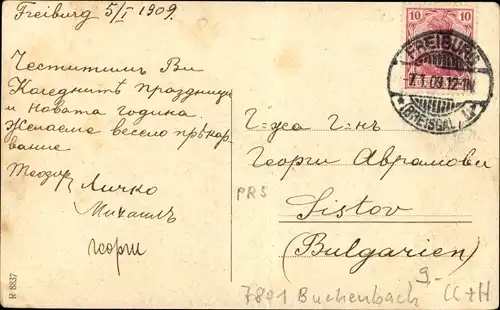 Freiburg 5/I 1909.
Честитимъ Ви
Коледнитѣ праздници
и новата година
Желаеме весело прѣкар
вание
Теодор Личко
Михаилъ
Георги
10
FREIBURG
7.1.09.12-1N
* (BREISGAU) *
Г-жа Г-нъ
Георги Аврамови
Sistov
(Bulgarien)
PRS
9.-
7801 Buchenbach CC+H
R 8837